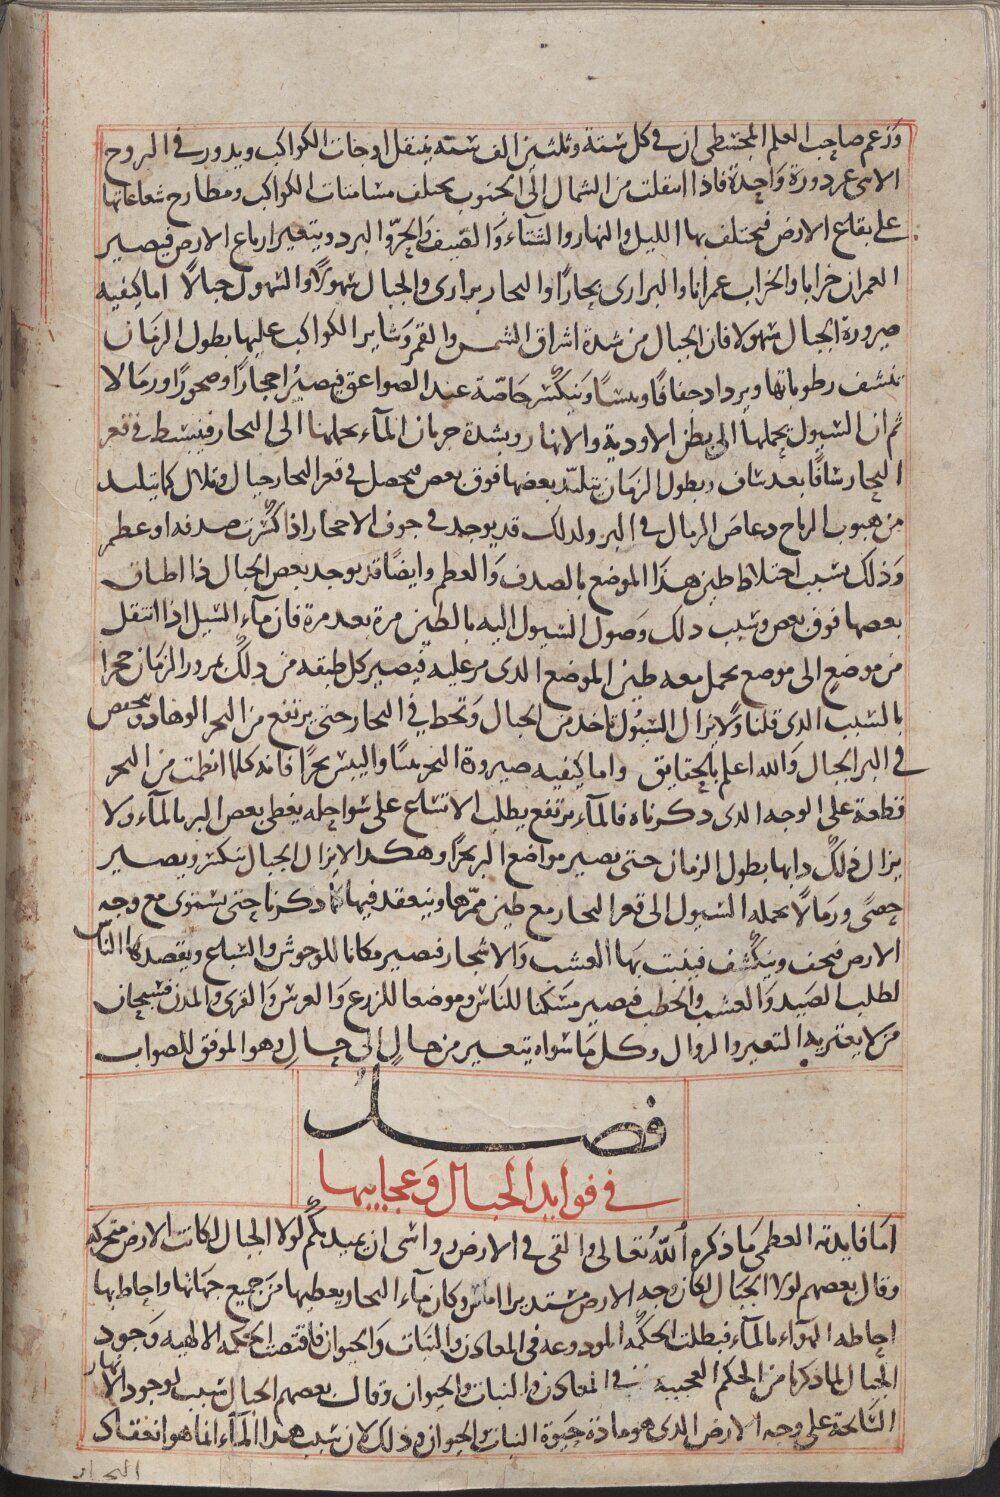 وزعم صاحب العلم المجسطى ان فى كل ستة وثلثين الف سنة ينتقل اوجات الكواكب ويدور فى البروج
الاثنى عشر دورة واحدة فاذا انتقلت من الشمال الى الجنوب يختلف مسامتات الكواكب ومطارح شعاعاتها
على بقاع الارض فيختلف بها الليل والنهار والشتاء والصيف والحر والبرد ويتغير ارباع الارض فيصير
العمران خرابا والخراب عمرانا والبرارى بحارًا والبحار برارى والجبال سهولًا والسهول جبالًا اما كيفيه
صيرورة الجبال سهولا فان الجبال من شدة اشراق الشمس والقمر وساير الكواكب عليها بطول الزمان
تنشف رطوباتها ويزداد جفافًا ويبسًا وينكسر خاصّة عند الصواعق فيصير احجارًا وصخورًا ورمالا
ثم ان السيول تحملها الى بطن الاودية والانهار وبشدة جريان المآء يحملها الى البحار فينبسط فى قعر
البحار سافًا بعد ساف وبطول الزمان يتلبّد بعضها فوق بعض فيحصل فى قعر البحار جبال وتلال كما يتلبد
من هبوب الرياح دعاص الرمال فى البر ولذلك قد يوجد فى جوف الاحجار اذا كسرت صدفه او عظم
وذلك بسبب اختلاط طين هذا الموضع بالصدف والعظم وايضًا قد يوجد بعض الجبال ذا اطباق
بعضها فوق بعض وسبب ذلك وصول السيول اليه بالطين مرة بعد مرة فان مآء السيل اذا انتقل
من موضع الى موضع يحمل معه طين الموضع الذى مر عليه فيصير كل طبقه من ذلك بمرور الزمان حجرا
بالسبب الذى قلنا ولا يزال السيول تاخذ من الجبال وتحط فى البحار حتى يرتفع من البحر الوهاد وينخفض
فى البر الجبال والله اعلم بالحقايق واما كيفيه صيرورة البحر يبسًا واليبس بحرًا فانه كلما انطمت من البحر
قطعة على الوجه الذى ذكرناه فالمآء يرتفع يطلب الاتساع على سواحله يغطى بعض البر بالمآء ولا
يزال ذلك دابها بطول الزمان حتى يصير مواضع البر بحرًا وهكذا لا يزال الجبال ينكسر ويصير
حصًى ورمالًا تحمله السيول الى قعر البحار مع طين ممرّها وينعقد فيها كما ذكرنا حتى يستوى مع وجه
الارض فيجف وينكشف فينبت بها العشب والاشجار فيصير مكانا للوحوش والسباع ويقصدها الناس
لطلب الصيد والعشب والحطب فيصير مسكنا للناس وموضعا للزرع والغرس والقرى والمدن فسبحان
من لا يعتريه التغير والزوال وكل ما سواه يتغير من حالٍ الى حالٍ وهو الموفق للصواب
فصل
فى فوايد الجبال وعجايبها
اما فايدته العظمى ما ذكره الله تعالى والقى فى الارض رواسى ان يميد بكم لولا الجبال لكانت الارض متحركه
وقال بعضهم لولا الجبال لكان وجه الارض مستديرا املس وكان مآء البحار يغطيها من جميع جهاتها واحاط بها
احاطه الهوآء بالمآء فبطلت الحكمه المودوعه فى المعادن والنبات والحيوان فاقتضت الحكمه الالهيه وجود
الجبال لما ذكرنا من الحكم العجيبه فى المعادن والنبات والحيوان وقالت بعضهم الجبال سبب لوجود الانهار
السايحة على وجه الارض الذى هو مادة حيوة النبات والحيوان وذلك لان سبب هذا المآء انما هو انعقاد
البخار